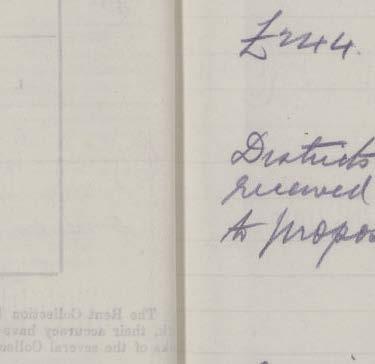 £244.
Districts
received
to propos
The Rent Collection
k, their accuracy have
ks of the several Collec